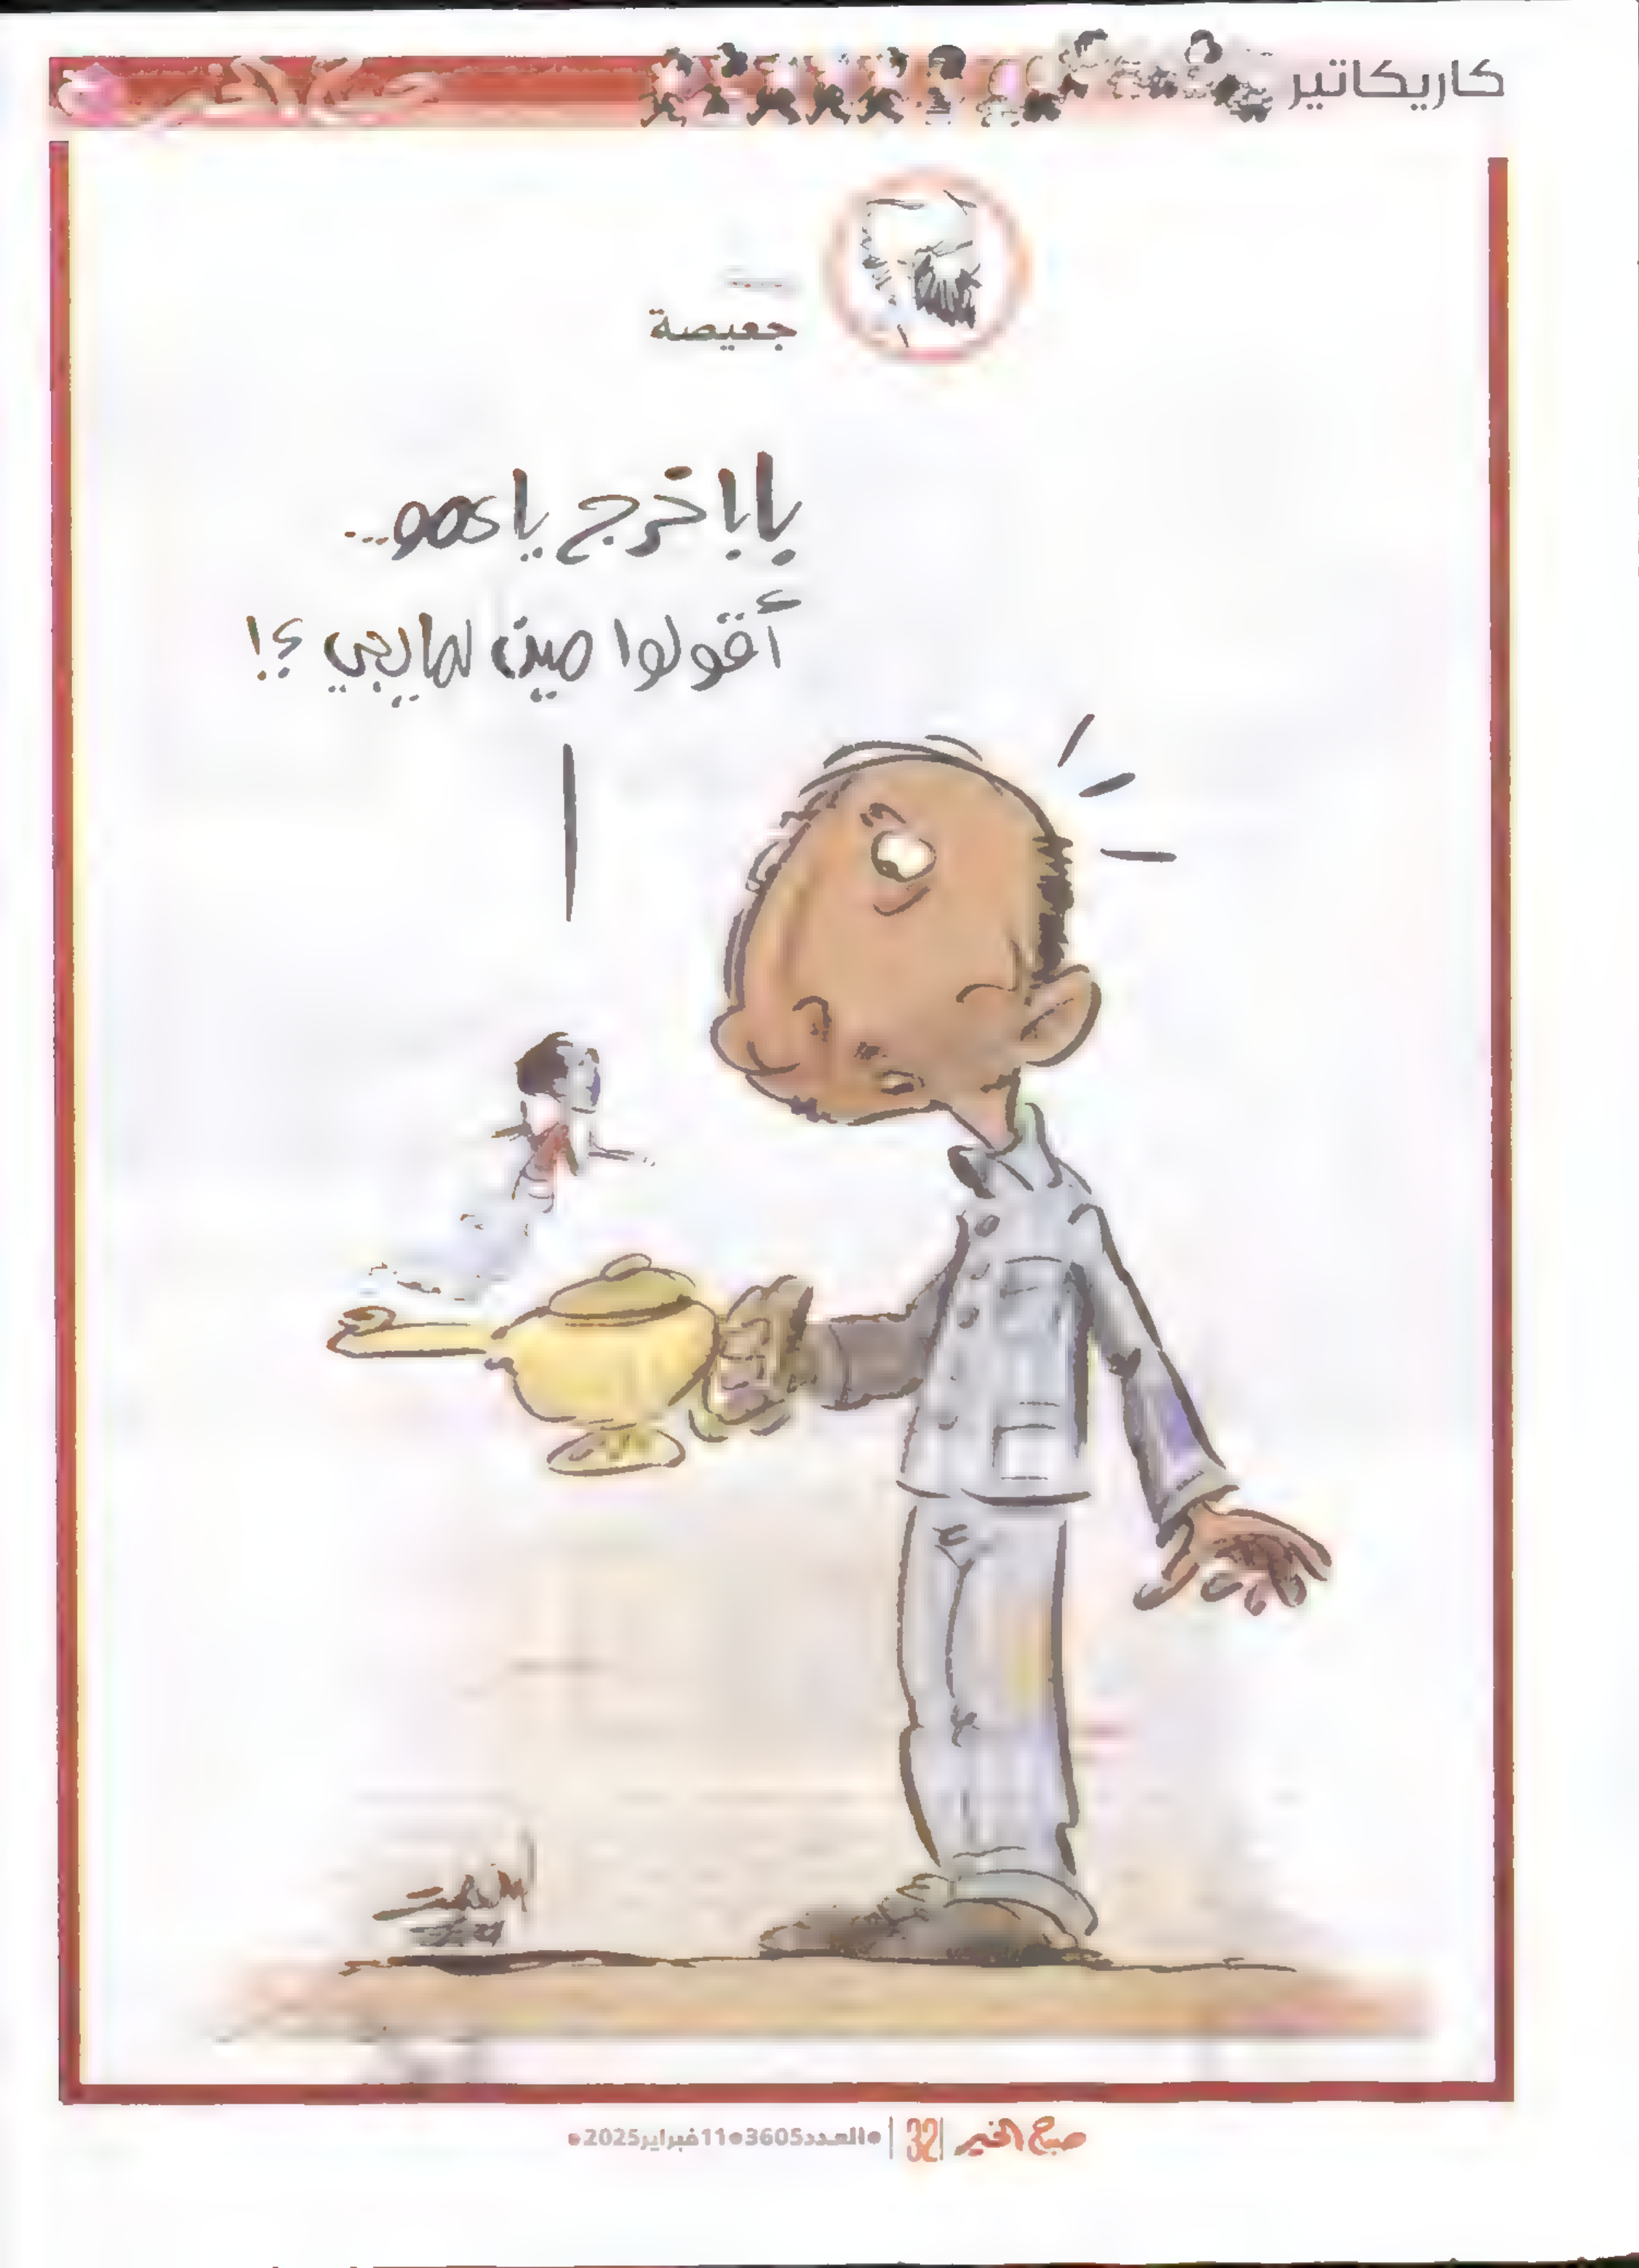 كاريكاتير
صباح الخير
جعيصة
بابا خرج يا عمو...
أقولوا مين لما ييجي ؟!
صباح الخير | 32 | •العدد3605•11فبراير2025•